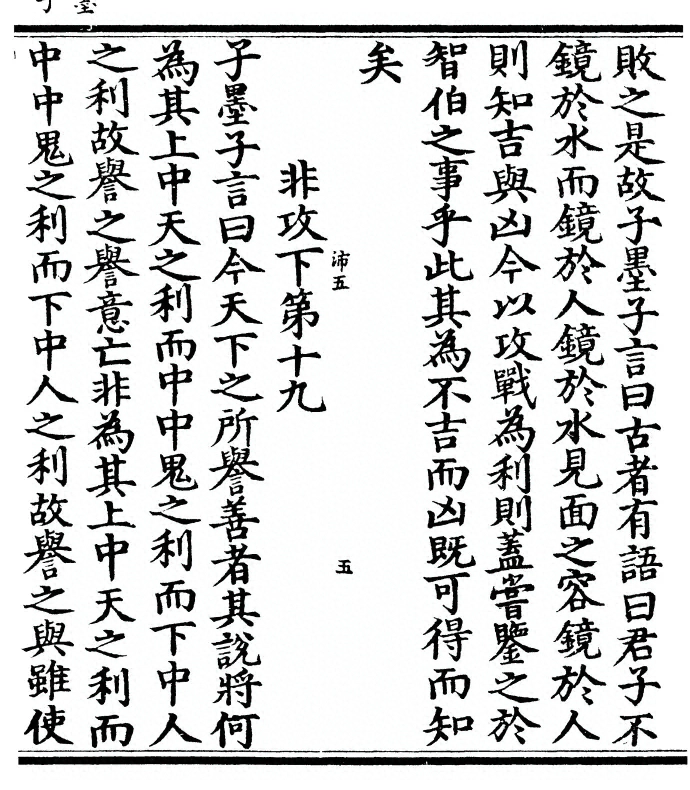 敗之是故子墨子言曰古者有語曰君子不
鏡於水而鏡於人鏡於水見面之容鏡於人
則知吉與凶今以攻戰為利則蓋嘗鑒之於
智伯之事乎此其為不吉而凶既可得而知
矣
沛五
五
非攻下第十九
子墨子言曰今天下之所譽善者其說將何
為其上中天之利而中中鬼之利而下中人
之利故譽之譽意亡非為其上中天之利而
中中鬼之利而下中人之利故譽之與雖使